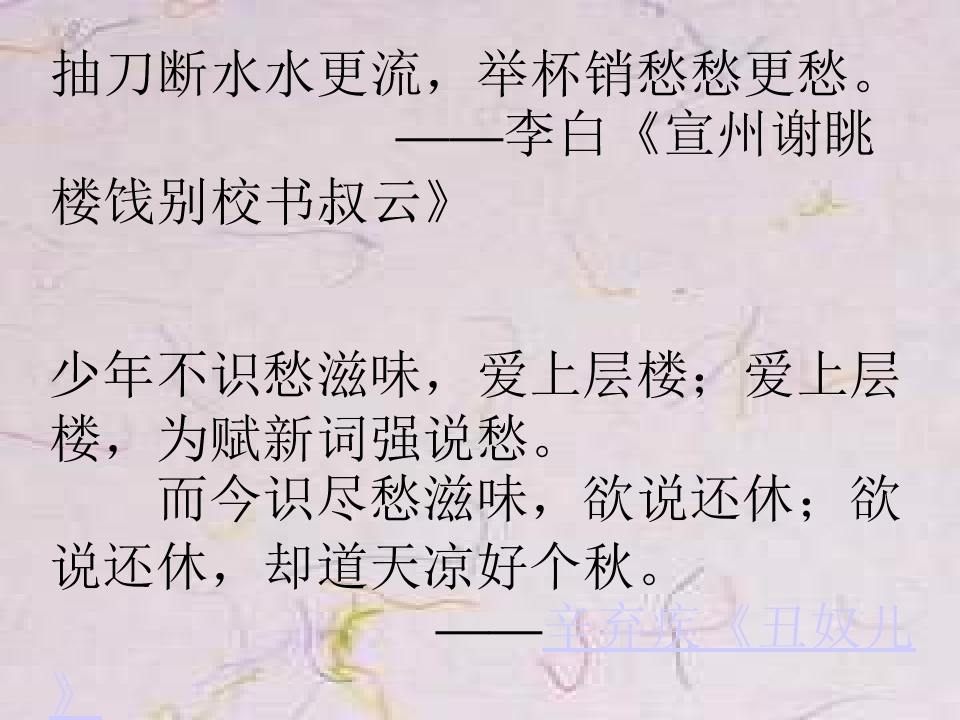 抽刀断水水更流，举杯销愁愁更愁。
——李白《宣州谢眺
楼饯别校书叔云》
少年不识愁滋味，爱上层楼；爱上层
楼，为赋新词强说愁。
而今识尽愁滋味，欲说还休；欲
说还休，却道天凉好个秋。
——辛弃疾《丑奴儿
》